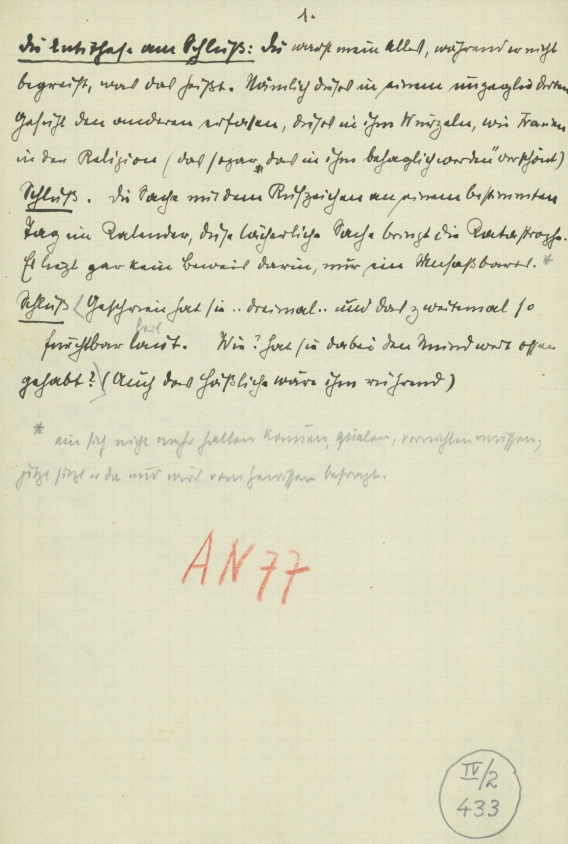 1.
Die Ekstase am Schluß: Du warst mein Alles, während er nicht
begreift, was das heißt. Nämlich dieses in einem ungegliederten
Gefühl den anderen erfassen, dieses in ihm Wurzeln, wie Frauen
in der Religion (das sogar „das in ihm behaglich werden" verschönt)
Schluß. Die Sache mit dem Rufzeichen an einem bestimmten
Tag im Kalender, diese lächerliche Sache bringt die Katastrophe.
Es liegt gar kein Beweis darin, nur ein Unfaßbares. *
Schluß (Geschrien hat sie .. dreimal .. und das zweitemal so
furchtbar laut. Wie? hat sie dabei den Mund weit offen
gehabt? (Auch das Häßliche wäre ihm rührend)
* ein sich nicht mehr halten können, quälen, vernichten müssen;
jetzt sitzt er da und wird vom Gewissen befragt.
AN 77
IV/2
433